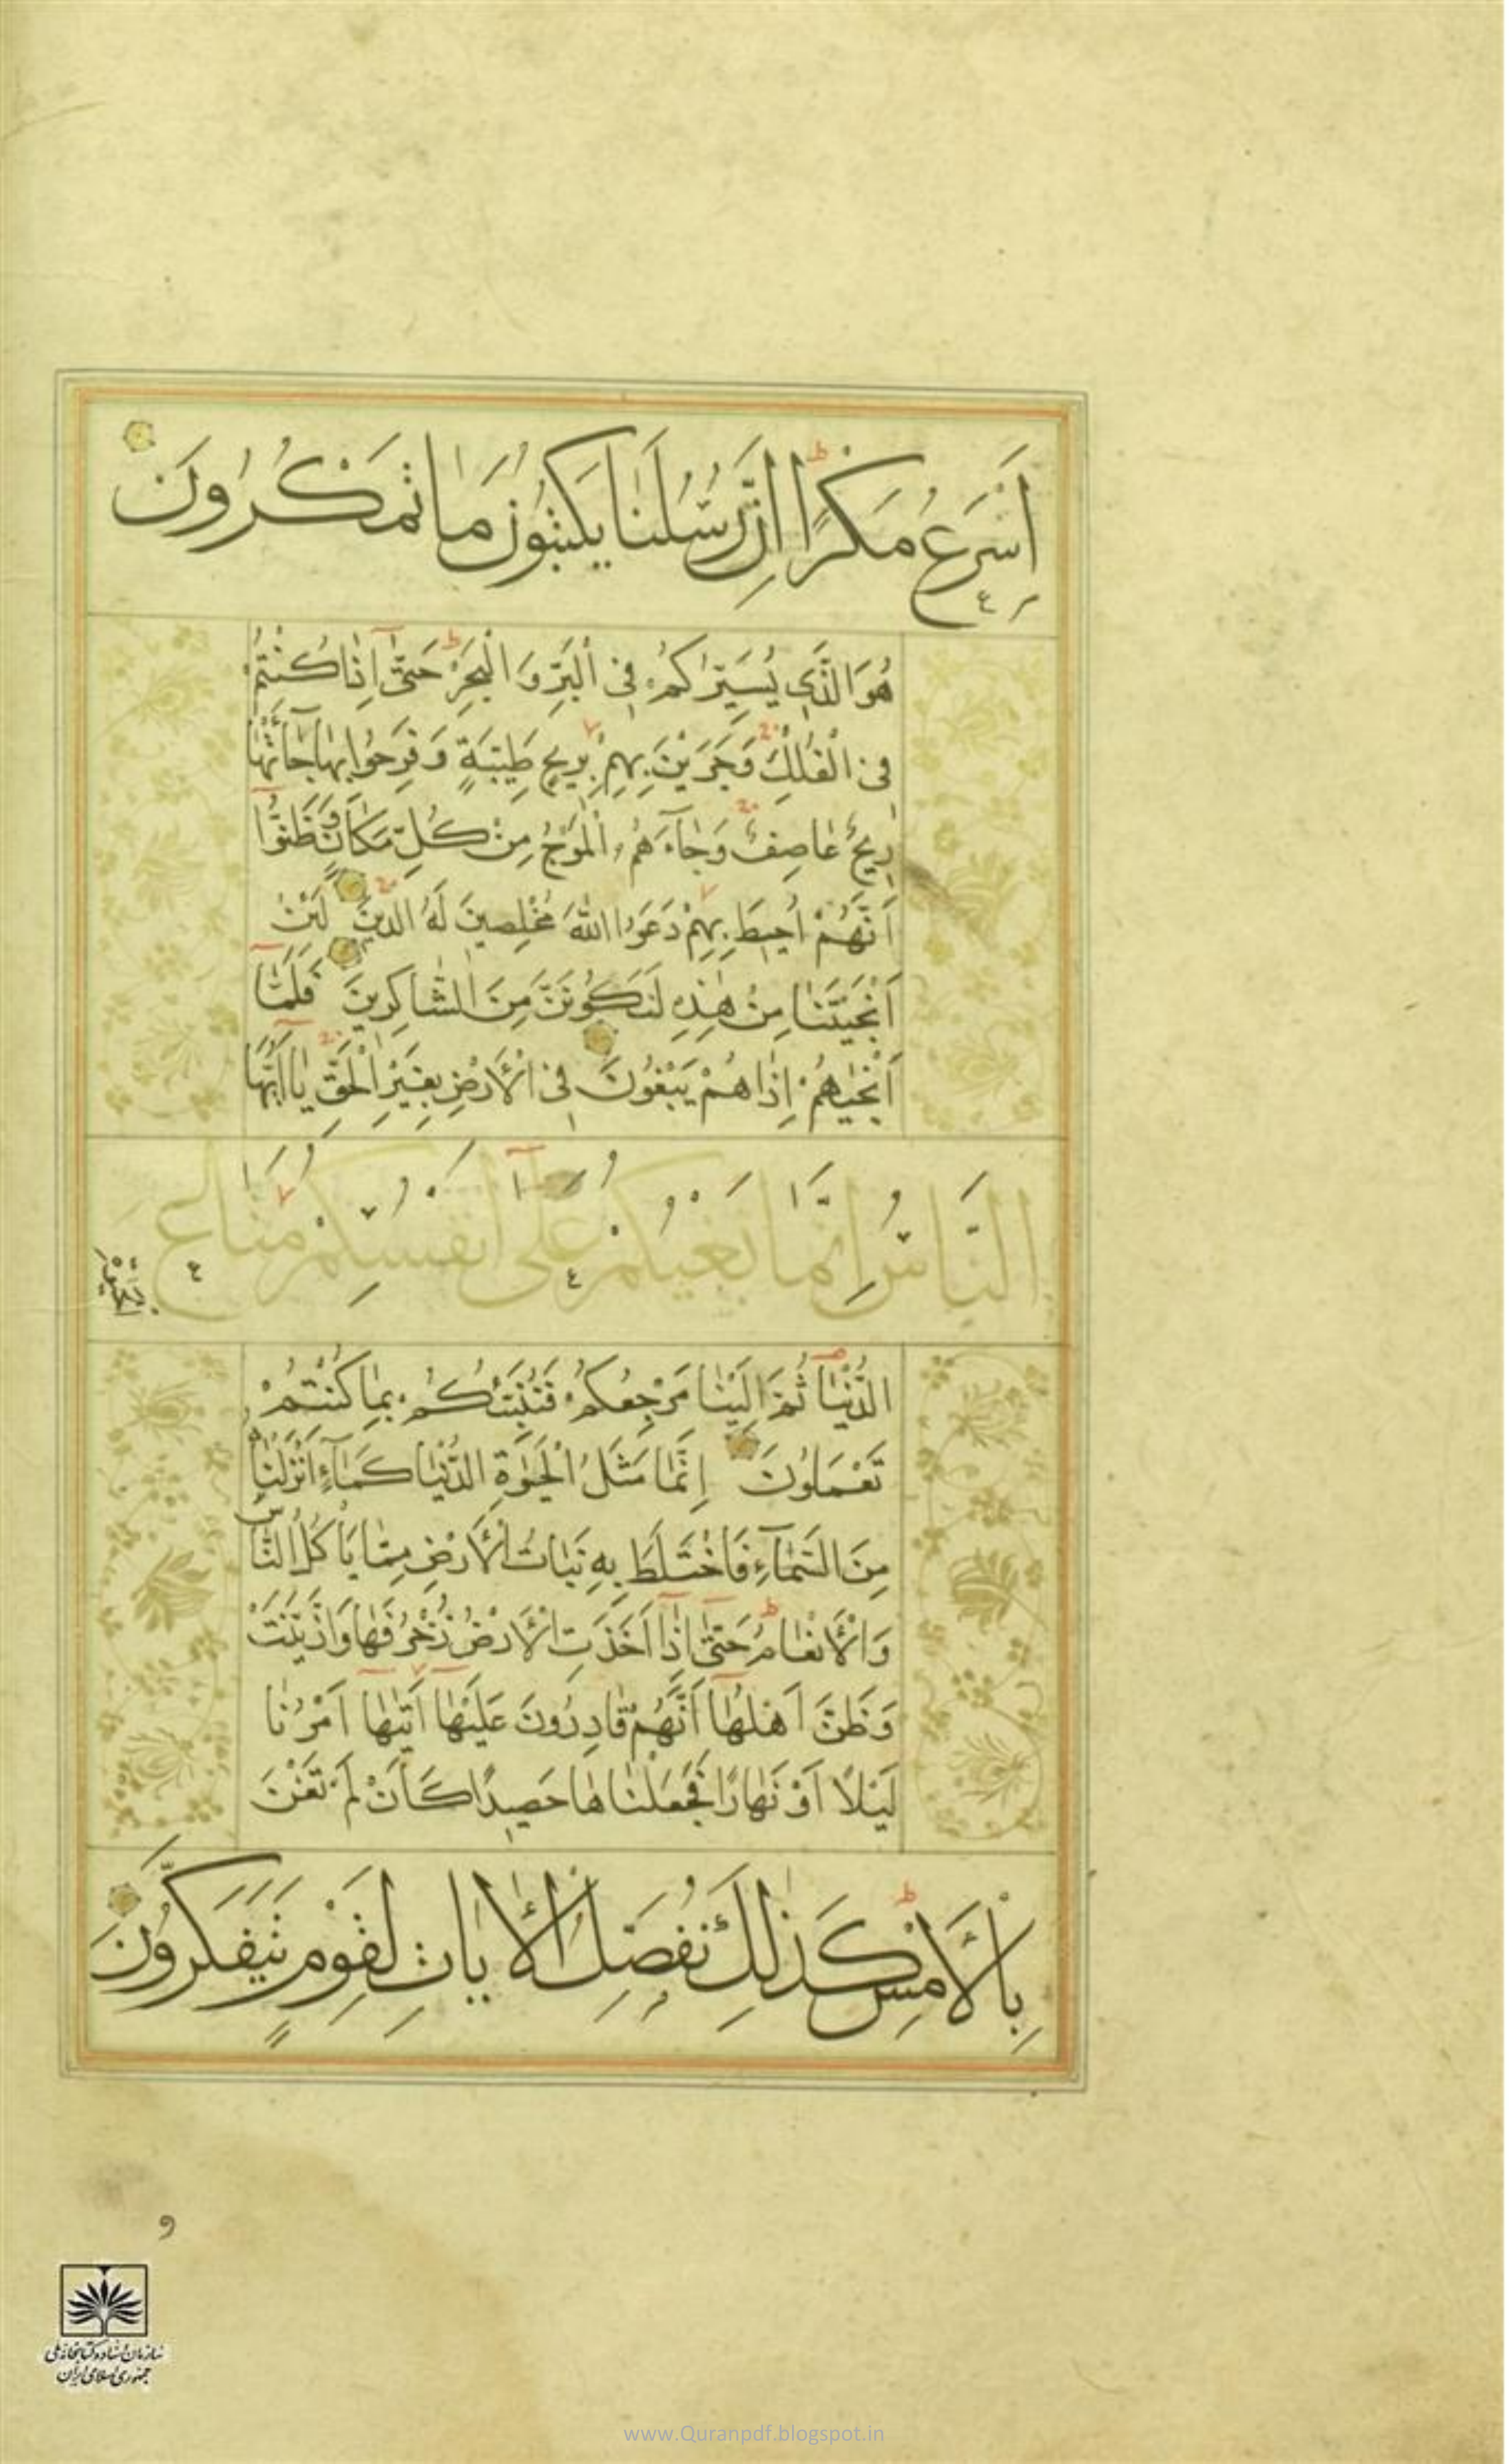 اَسْرَعُ مَكْرًا اِنَّ رُسُلَنٰا يَكْتُبُونَ مٰا تَمْكُرُونَ
هُوَ الَّذٖى يُسَيِّرُكُمْ فِى الْبَرِّ وَ الْبَحْرِ حَتّٰى اِذٰا كُنْتُمْ
فِى الْفُلْكِ وَجَرَيْنَ بِهِمْ بِرٖيحٍ طَيِّبَةٍ وَ فَرِحُوا بِهٰا جٰاءَتْهٰا
رٖيحٌ عٰاصِفٌ وَجٰآءَهُمُ الْمَوْجُ مِنْ كُلِّ مَكٰانٍ وَظَنُّوا
اَنَّهُمْ اُحٖيطَ بِهِمْ دَعَوُا اللّٰهَ مُخْلِصٖينَ لَهُ الدّٖينَ لَئِنْ
اَنْجَيْتَنٰا مِنْ هٰذِهٖ لَنَكُونَنَّ مِنَ الشّٰاكِرٖينَ فَلَمّٰا
اَنْجٰيهُمْ اِذٰا هُمْ يَبْغُونَ فِى الْاَرْضِ بِغَيْرِ الْحَقِّ يٰا اَيُّهَا
النَّاسُ اِنَّمٰا بَغْيُكُمْ عَلٰى اَنْفُسِكُمْ مَتٰاعَ الْحَيٰوةِ
الدُّنْيٰا ثُمَّ اِلَيْنٰا مَرْجِعُكُمْ فَنُنَبِّئُكُمْ بِمٰا كُنْتُمْ
تَعْمَلُونَ اِنَّمٰا مَثَلُ الْحَيٰوةِ الدُّنْيٰا كَمٰآءٍ اَنْزَلْنٰاهُ
مِنَ السَّمٰآءِ فَاخْتَلَطَ بِهٖ نَبٰاتُ الْاَرْضِ مِمّٰا يَأْكُلُ النّٰاسُ
وَالْاَنْعٰامُ حَتّٰى اِذٰا اَخَذَتِ الْاَرْضُ زُخْرُفَهٰا وَازَّيَّنَتْ
وَظَنَّ اَهْلُهٰا اَنَّهُمْ قٰادِرُونَ عَلَيْهٰا اَتٰيهٰا اَمْرُنٰا
لَيْلًا اَوْ نَهٰارًا فَجَعَلْنٰاهٰا حَصٖيدًا كَاَنْ لَمْ تَغْنَ
بِالْاَمْسِ كَذٰلِكَ نُفَصِّلُ الْاٰيٰاتِ لِقَوْمٍ يَتَفَكَّرُونَ
و
سازمان اسناد و کتابخانه ملی
جمهوری اسلامی ایران
www.Quranpdf.blogspot.in